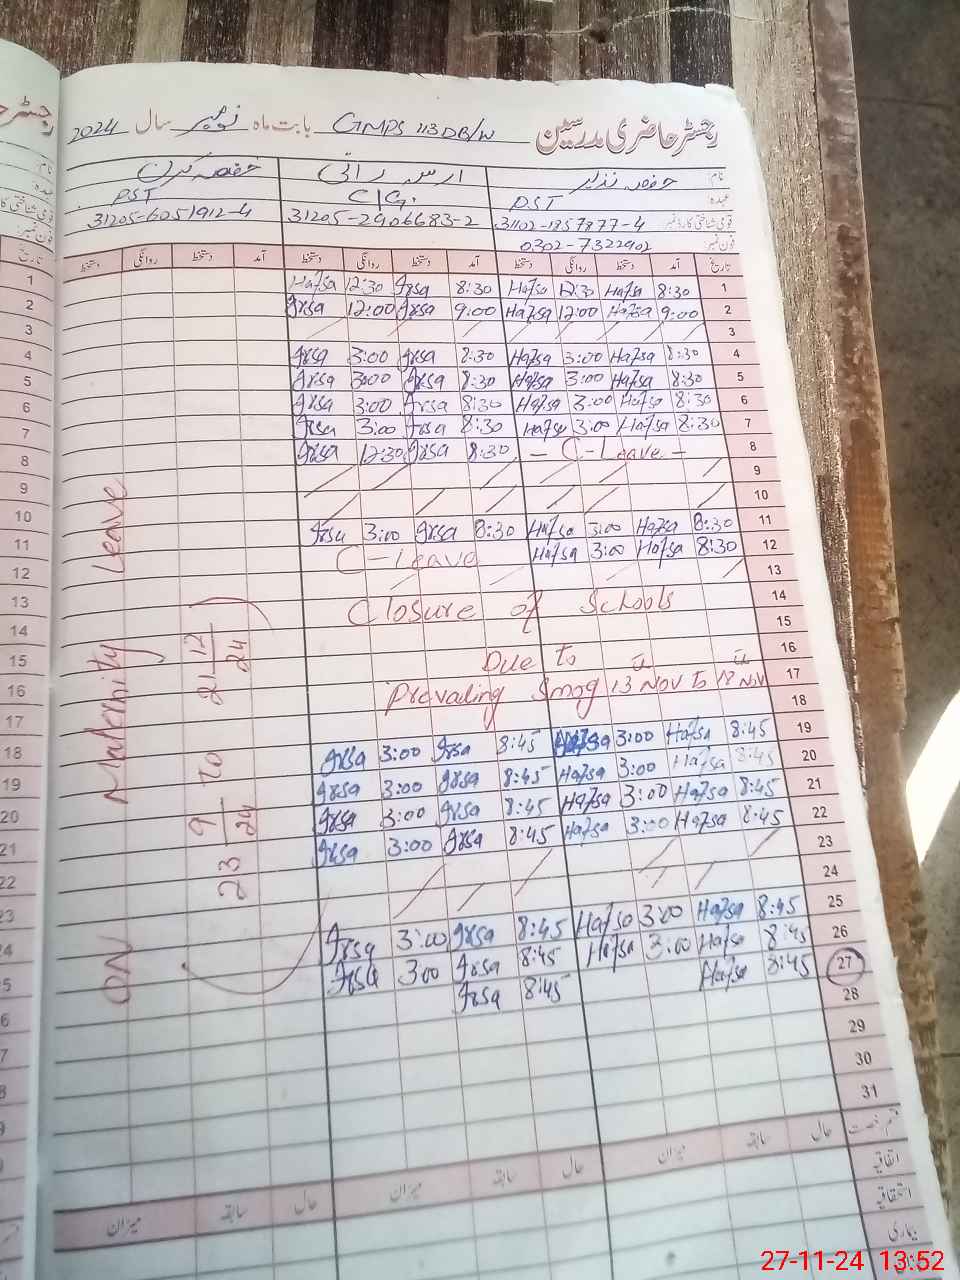 رجسٹر حاضری مدرسین GMPS 113DB/W بابت ماہ نومبر سال 2024
نام: حفصہ نذیر ارسہ رانی حفصہ کرن
عہدہ PST C/G. PST
قومی شناختی کارڈ نمبر 31102-1857877-4 31205-2906683-2 31205-6051912-4
فون نمبر: 0302-7322902
تاریخ آمد دستخط روانگی دستخط آمد دستخط روانگی دستخط آمد دستخط روانگی دستخط
1 8:30 Hafsa 12:30 Hafsa 8:30 Irsa 12:30 Hafsa
2 9:00 Hafsa 12:00 Hafsa 9:00 Irsa 12:00 Irsa
3
4 8:30 Hafsa 3:00 Hafsa 8:30 Irsa 3:00 Irsa
5 8:30 Hafsa 3:00 Hafsa 8:30 Irsa 3:00 Irsa
6 8:30 Hafsa 3:00 Hafsa 8:30 Irsa 3:00 Irsa
7 8:30 Hafsa 3:00 Hafsa 8:30 Irsa 3:00 Irsa
8 - C-Leave - 8:30 Irsa 12:30 Irsa
9
10
11 8:30 Hafsa 3:00 Hafsa 8:30 Irsa 3:00 Irsa
12 8:30 Hafsa 3:00 Hafsa C-Leave
13
14 Closure of Schools
15
16 Due to
17 Prevading Smog 13 Nov To 18 Nov
18
19 8:45 Hafsa 3:00 Hafsa 8:45 Irsa 3:00 Irsa
20 8:45 Hafsa 3:00 Hafsa 8:45 Irsa 3:00 Irsa
21 8:45 Hafsa 3:00 Hafsa 8:45 Irsa 3:00 Irsa
22 8:45 Hafsa 3:00 Hafsa 8:45 Irsa 3:00 Irsa
23
24
25 8:45 Hafsa 3:00 Hafsa 8:45 Irsa 3:00 Irsa
26 8:45 Hafsa 3:00 Hafsa 8:45 Irsa 3:00 Irsa
27 8:45 Hafsa 8:45 Irsa
28
29
30
31
ON Maternity Leave
23 9/24 To 21 12/24
حال سابقہ میزان حال سابقہ میزان حال سابقہ میزان
اتفاقیہ
استحقاقیہ
بیماری
رجسٹر
نام:
عہدہ:
فون نمبر:
تاریخ
1
2
3
4
5
6
7
8
9
10
11
12
13
14
15
16
17
18
19
20
21
22
27-11-24 13:52